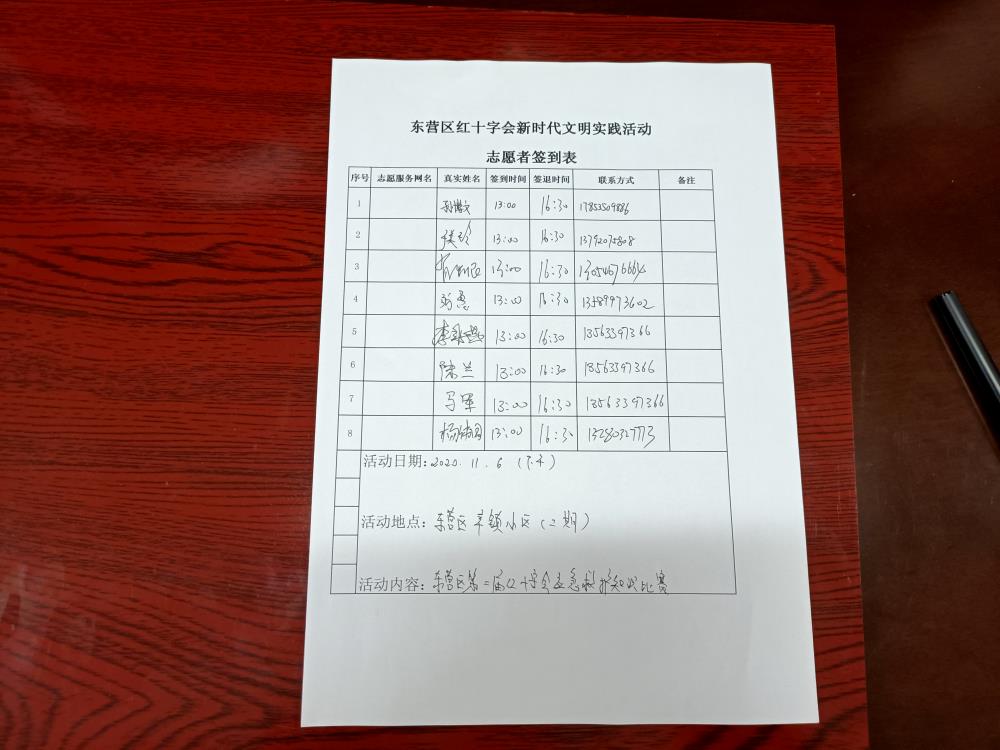 东营区红十字会新时代文明实践活动
志愿者签到表
序号 志愿服务网名 真实姓名 签到时间 签退时间 联系方式 备注
1 13:00 16:30 17853509886
2 13:00 16:30 13792072808
3 13:00 16:30 13054676664
4 13:00 16:30 13589973602
5 13:00 16:30 13563397366
6 陈兰 13:00 16:30 13563397366
7 马军 13:00 16:30 13563397366
8 13:00 16:30
活动日期:2020.11.6(下午)
活动地点:东营区辛镇小区(二期)
活动内容:东营区第二届红十字会应急救护知识比赛